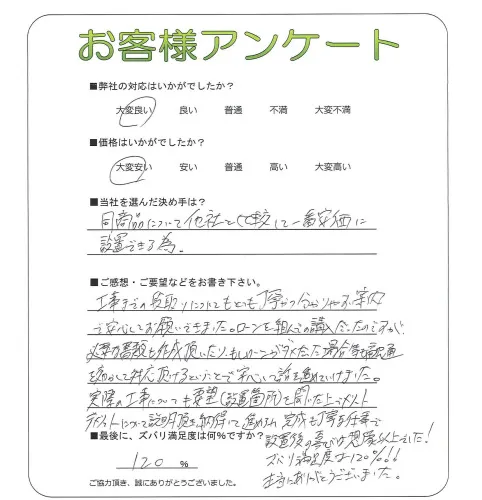 お客様アンケート
■弊社の対応はいかがでしたか？
大変良い 良い 普通 不満 大変不満
■価格はいかがでしたか？
大変安い 安い 普通 高い 大変高い
■当社を選んだ決め手は？
同商品について他社と比較して一番安価に
設置できる為。
■ご感想・ご要望などをお書き下さい。
工事までの段取りについてもとても丁寧かつ分かりやすい案内
で安心してお願いできました。ローンを組んでの購入だったのですが、
必要書類も作成頂いたり、もしローンがダメだった場合等も融通
を効かして対応頂けるということで安心して話を進めていけました。
実際の工事についても要望(設置箇所)を聞いた上でメリット
デメリットについて説明頂き納得して進められ、完成も丁寧な仕事で
設置後の喜びは想像以上でした！
■最後に、ズバリ満足度は何%ですか？
ズバリ満足度は120%!!!
120 %
本当にありがとうございました。
ご協力頂き、誠にありがとうございました。